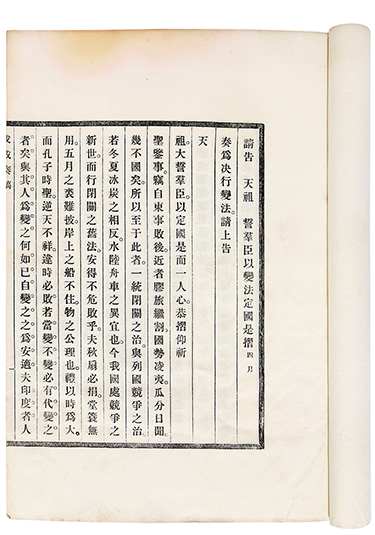 請告　天祖　誓羣臣以變法定國是摺 四月
奏爲決行變法。請上告
天
祖。大誓羣臣以定國是而一人心。恭摺仰祈
聖鑒事。竊自東事敗後。近者膠旅繼割。國勢凌夷。瓜分日聞。
幾不國矣。所以至于此者。一統閉關之治。與列國競爭之治。
若冬夏冰炭之相反。水陸舟車之異宜也。今我國處競爭之
新世。而行閉關之舊法。安得不危敗乎。夫秋扇必捐。堂簑無
用。五月之裘難披。岸上之船不住。物之公理也。禮以時爲大。
而孔子時聖。逆天不祥。違時必敗。若當變不變。必有代變之
者矣。與其人爲變之。何如己自變之之爲安適。夫印度者。人
戊戌奏稿
一